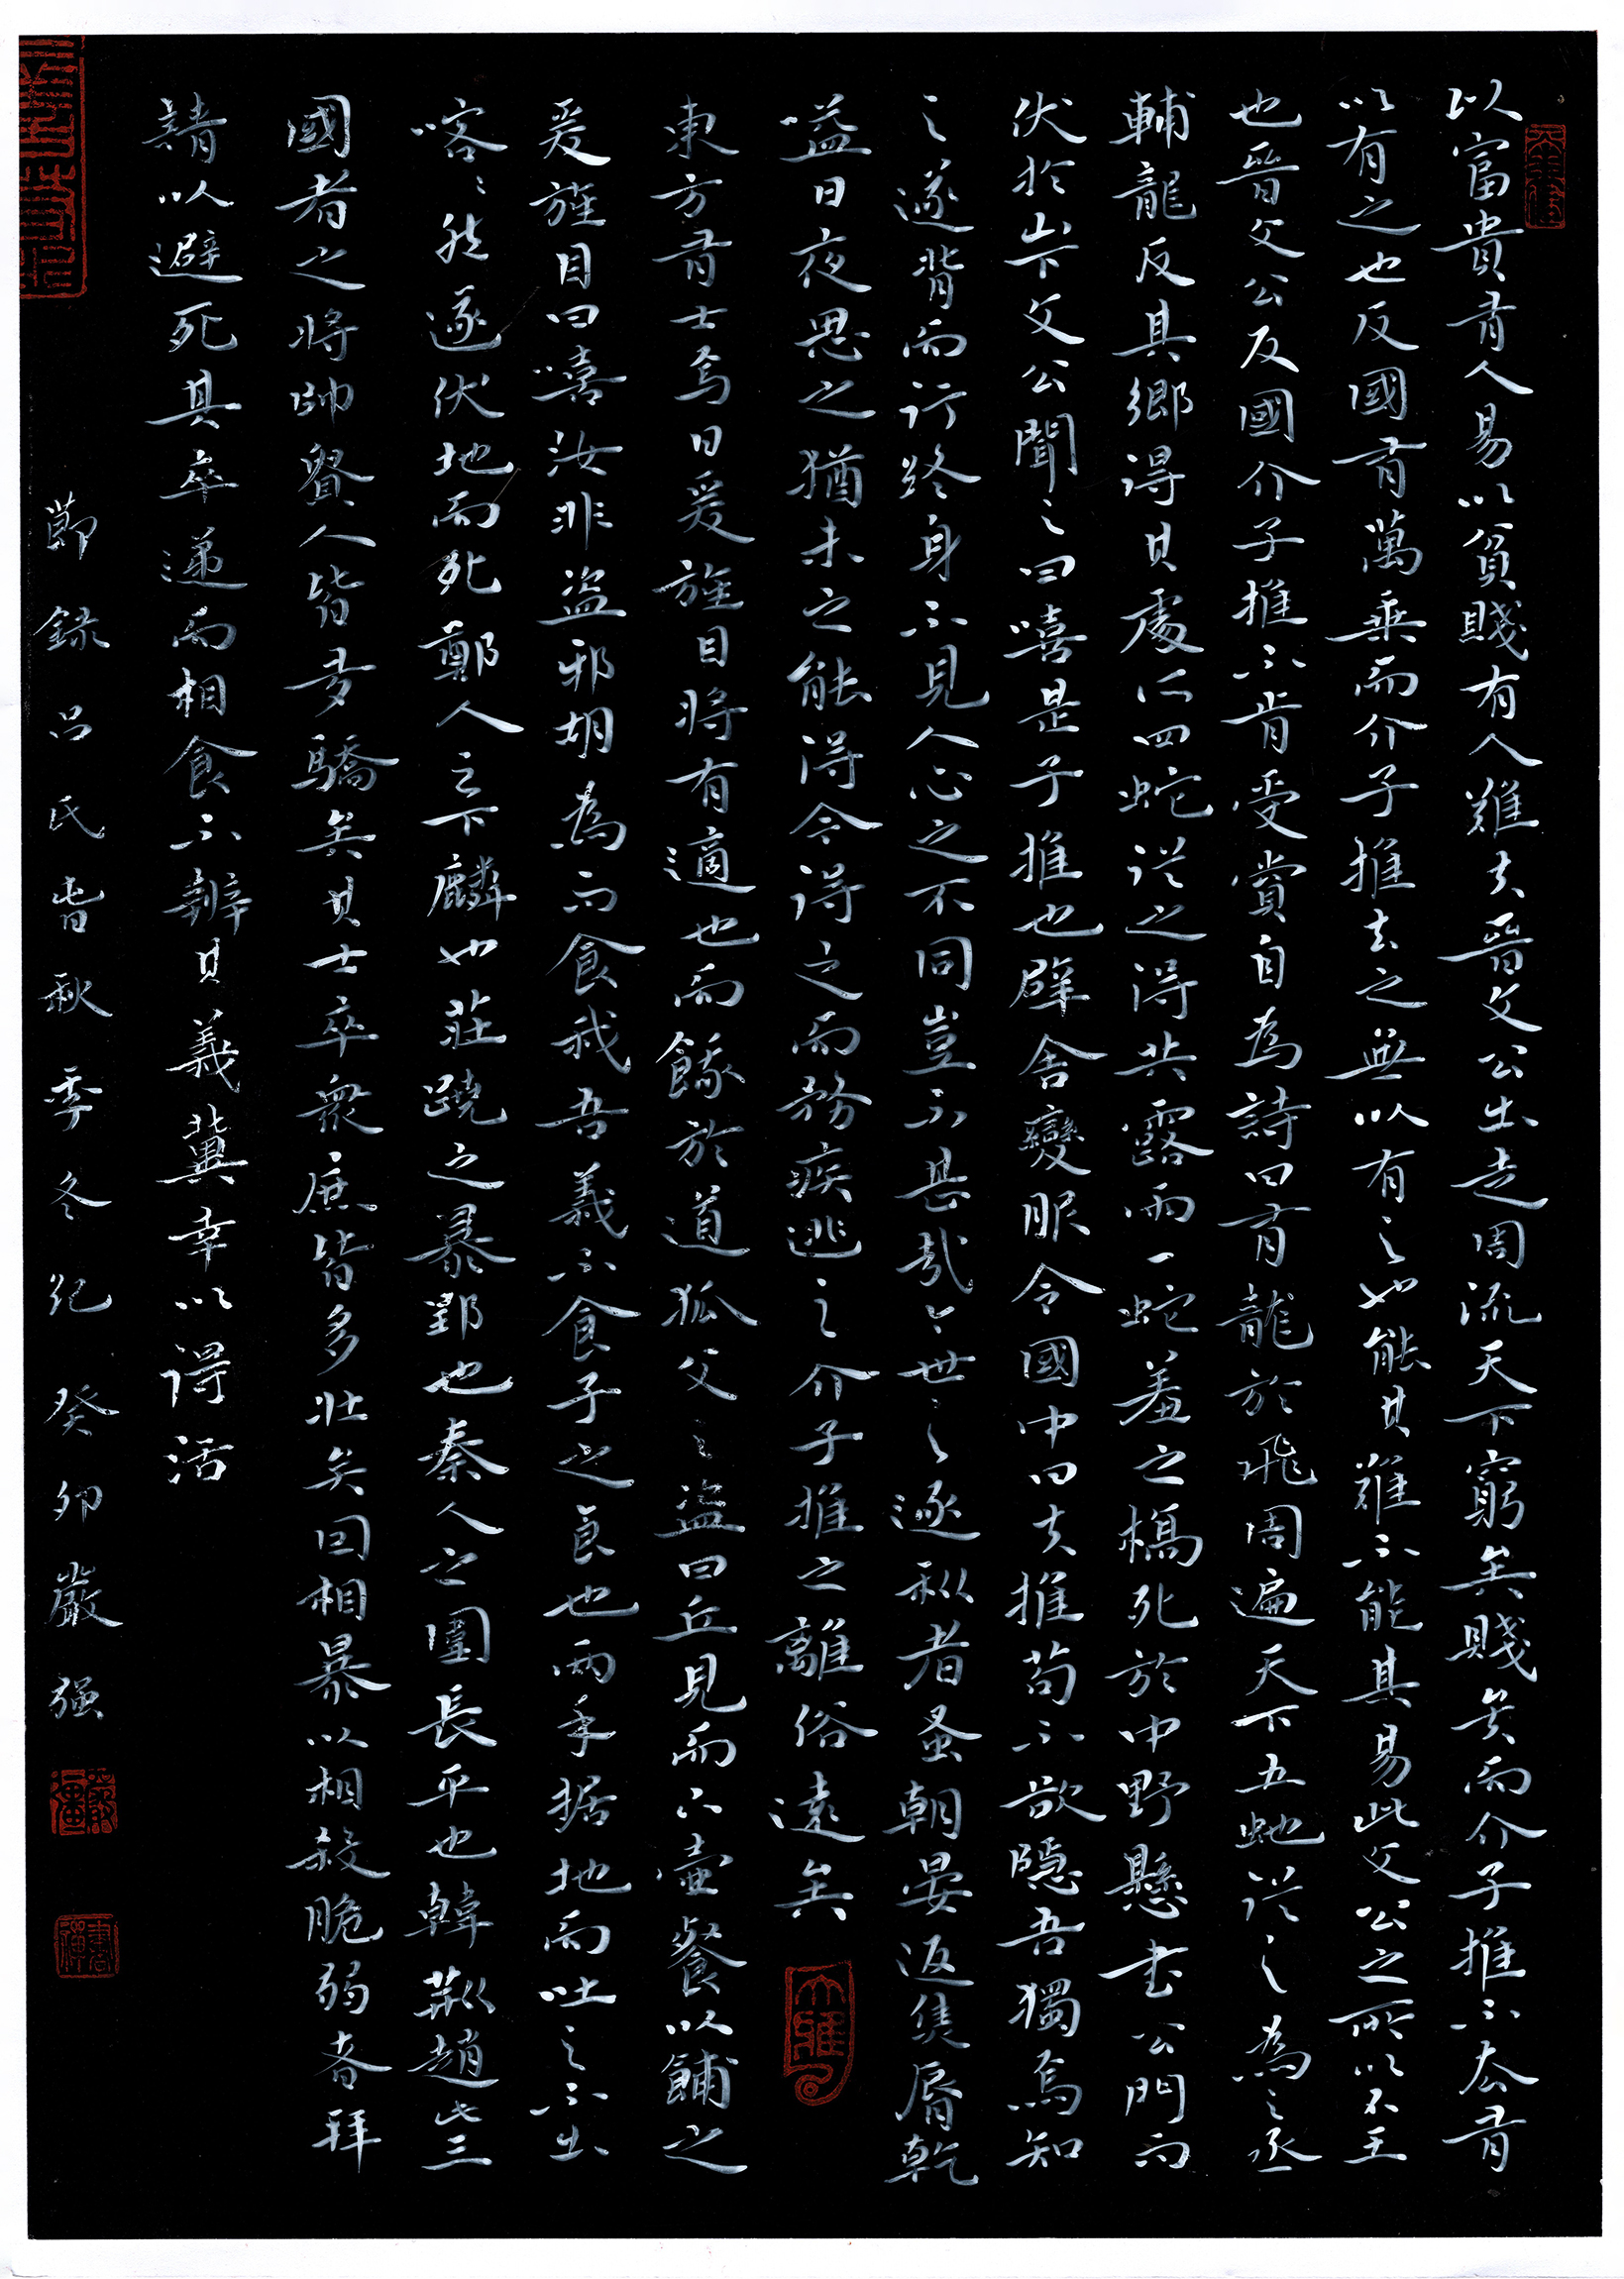 以富貴有人易以貧賤有人難夫晉文公出走周流天下窮矣賤矣而介子推不去有
以有之也反國有萬乘而介子推去之無以有之也能其難不能其易此文公之所以不王
也晉文公反國介子推不肯受賞自為詩曰有龍於飛周遍天下五蛇從之為之丞
輔龍反其鄉得其處所四蛇從之得其露雨一蛇羞之橋死於中野懸書公門而
伏於山下文公聞之曰嘻是子推也避舍變服令國中曰夫推苟不欲隱吾獨焉知
之遂背而行終身不見人心之不同豈不甚哉今世之逐利者蚤朝晏返焦脣乾
嗌日夜思之猶未之能得今得之而務疾逃之介子推之離俗遠矣
東方有士焉曰爰旌目將有適也而餓於道狐父之盜曰丘見而下壺餐以餔之
爰旌目曰嘻汝非盜邪胡為而食我吾義不食子之食也兩手據地而吐之不出
喀喀然遂伏地而死鄭人之下麟也莊蹻之暴郢也秦人之圍長平也韓荊趙此三
國者之將帥貴人皆多驕矣其士卒眾庶皆多壯矣因相暴以相殺脆弱者拜
請以避死其卒遞而相食不辨其義冀幸以得活
節錄呂氏春秋季冬紀 癸卯嚴强